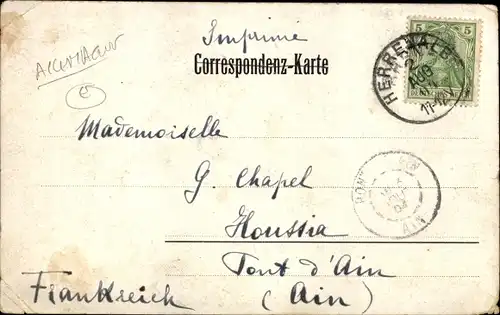 Imprimé
Correspondenz-Karte
5 5
HERRENALB
AUG
11-12V
Mademoiselle
G. Chapel
Houssia
Pont d'Ain
(Ain)
Frankreich
PONT AIN
AIN